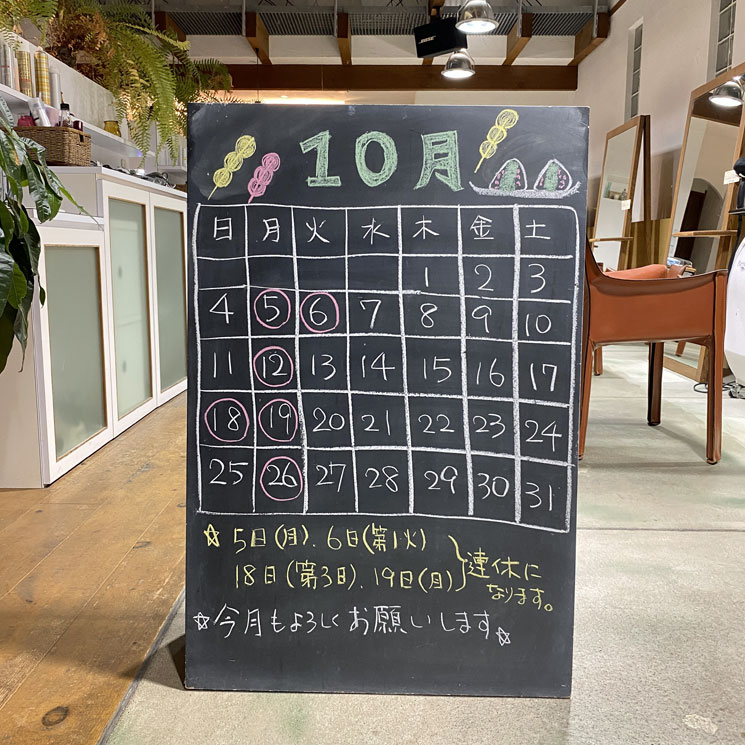 BOSE
10月
日 月 火 水 木 金 土
1 2 3
4 5 6 7 8 9 10
11 12 13 14 15 16 17
18 19 20 21 22 23 24
25 26 27 28 29 30 31
☆ 5日(月). 6日(第1火)
18日(第3日). 19日(月)
連休に
なります。
☆今月もよろしくお願いします☆